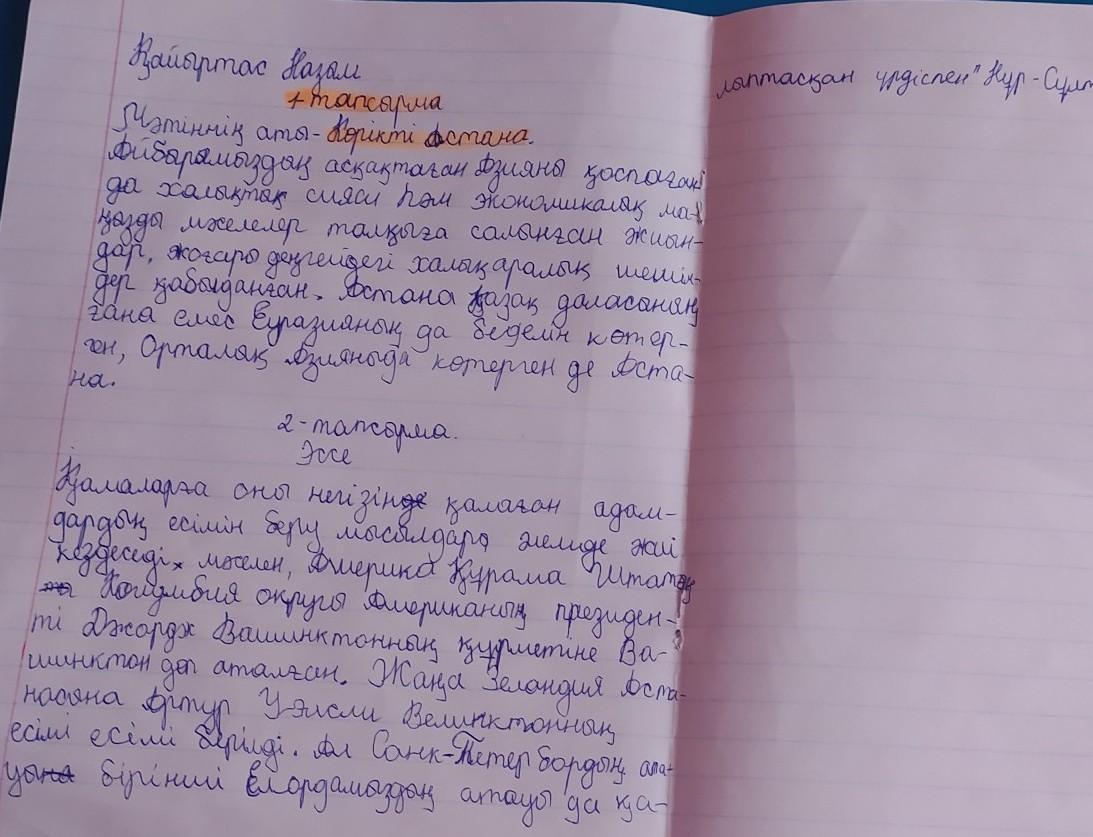 Қайыртас Назым
1-тапсырма
Мәтіннің аты - Көрікті Астана.
Айбарымыздың асқақтаған Азияны қоспаған
да халықтық сияси һәм экономикалық ма-
ңызды мәселелер талқыға салынған жиын-
дар, жоғары деңгейдегі халықаралық шешім-
дер қабыданған. Астана қазақ даласының
ғана емес Еуразияның да беделін көтер-
ген, Орталық Азияныда көтерген де Аста-
на.
2-тапсырма.
Эссе
Қамаларға оны негізін қалаған адам-
дардың есімін беру мысалдары әлемде жиі
кездеседі, мәселен, Америка Құрама Штаты
Колумбия округы Американың президен-
ті Джордж Вашинктонның құрметіне Ва-
шинктон деп аталған. Жаңа Зеландия Аста-
насына Артур Уэлсли Велинктонның
есімі есімі берілді. Ал Санк-Петербордың ата-
уы бірінші Елордамыздың атауы да қа-
лыптасқан үрдіспен "Нұр-Сұлт